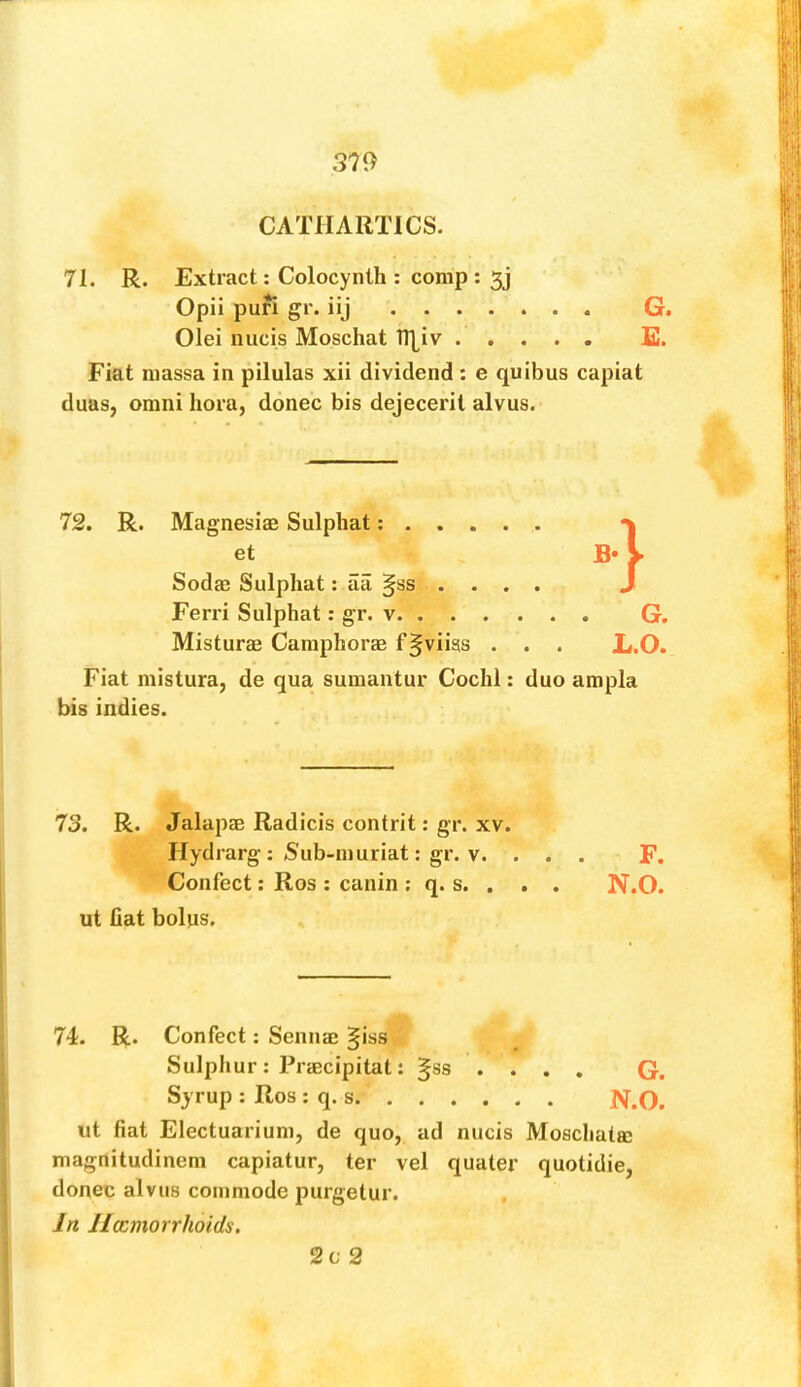 379
CATHARTICS.
71. R. Extract: Colocynth: comp: ʒj
Opii puri gr. iij . . . . . . . G.
Olei nucis Moschat ♏iv . . . . . E.
Fiat massa in pilulas xii dividend: e quibus capiat
duas, omni hora, donec bis dejecerit alvus.
72. R. Magnesiæ Sulphat: . . . . . .
et B. }
Sodæ Sulphat: āā ℥ss . . . .
Ferri Sulphat: gr. v. . . . . . . G.
Misturæ Camphoræ f℥viiss . . . L.O.
Fiat mistura, de qua sumantur Cochl: duo ampla
bis indies.
73. R. Jalapæ Radicis contrit: gr. xv.
Hydrarg: Sub-muriat: gr. v. . . . F.
Confect: Ros: canin: q. s. . . . N.O.
ut fiat bolus.
74. ℞. Confect: Sennæ ℥iss
Sulphur: Præcipitat: ℥ss . . . . G.
Syrup: Ros: q. s. . . . . . . N.O.
ut fiat Electuarium, de quo, ad nucis Moschatæ
magnitudinem capiatur, ter vel quater quotidie,
donec alvus commode purgetur.
In Hœmorrhoids.
2 c 2